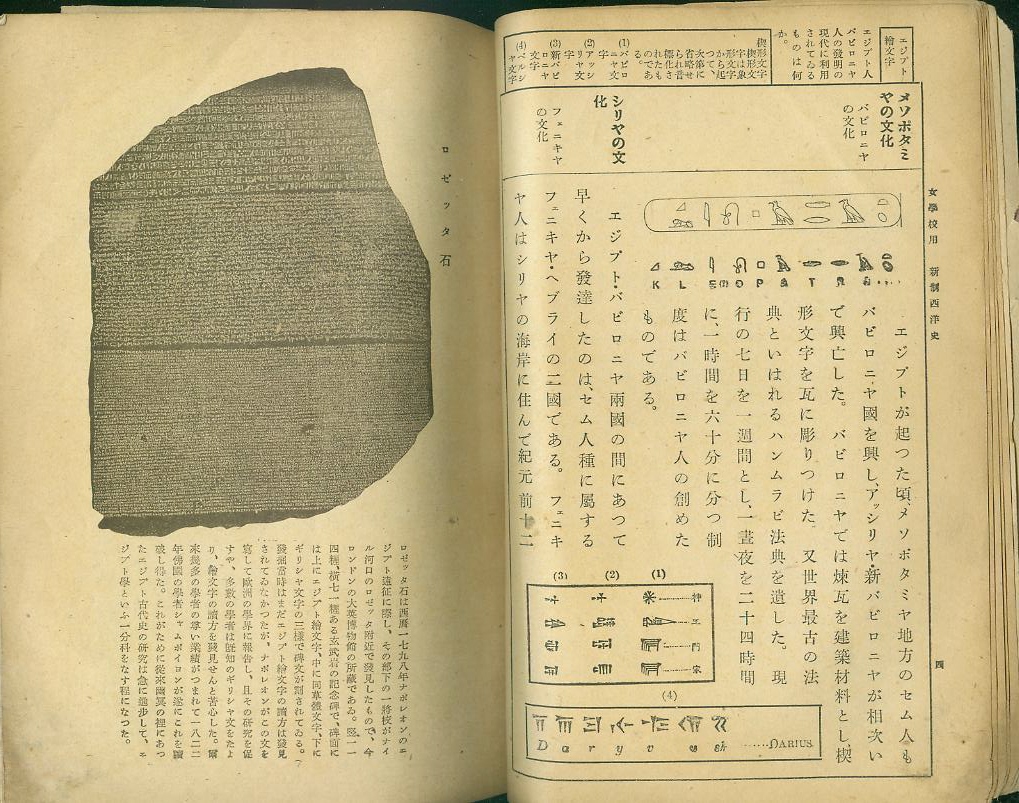 女學校用 新制西洋史
四
エジプト
繪文字
エジプト人
バビロニヤ
人の發明の
現代に利用
されてゐる
ものは何
か。
楔形文字
楔形文
字は象
形文字
から起
つて、
次第に
省略せ
られ音
標化さ
れたも
のであ
る。
(1)バビロ
ニヤ文
字
(2)アッシ
リヤ文
字
(3)新バビ
ロニヤ
文字
(4)ペルシ
ヤ文字
メソポタミ
ヤの文化
バビロニヤ
の文化
シリヤの文
化
フェニキヤ
の文化
K L E O P A T R A
エジプトが起つた頃、メソポタミヤ地方のセム人も
バビロニヤ國を興し、アッシリヤ・新バビロニヤが相次い
で興亡した。バビロニヤでは煉瓦を建築材料とし、楔
形文字を瓦に彫りつけた。又世界最古の法
典といはれるハンムラビ法典を遺した。現
行の七日を一週間とし、一晝夜を二十四時間
に、一時間を六十分に分つ制
度はバビロニヤ人の創めた
ものである。
エジプト・バビロニヤ兩國の間にあつて
早くから發達したのは、セム人種に屬する
フェニキヤ・ヘブライの二國である。フェニキ
ヤ人はシリヤの海岸に住んで紀元前十二
(3) (2) (1)
神
王
門
家
(4)
D a r y v u š ……DARIUS.
ロゼッタ石
ロゼッタ石は西曆一七九八年ナポレオンのエ
ジプト遠征に際し、その部下の一將校がナイ
ル河口のロゼッタ附近で發見したもので、今
ロンドンの大英博物館の所藏である。竪一一
四糎、橫七一糎ある玄武岩の記念碑で、碑面に
は上にエジプト繪文字、中に同草體文字、下に
ギリシャ文字の三樣で碑文が刻されてゐる。
發掘當時はまだエジプト繪文字の讀方は發見
されてゐなかつたが、ナポレオンがこの文を
寫して歐洲の學界に報告し、且その研究を促
すや、多數の學者は既知のギリシャ文をたよ
り、繪文字の讀方を發見せんと苦心した。爾
來幾多の學者の尊い業績がつまれて一八二二
年佛國の學者シャムポイロンが遂にこれを讀
破し得た。これがために從來幽冥の裡にあつ
たエジプト古代史の研究は急に進步して、エ
ジプト學といふ一分科をなす程になつた。